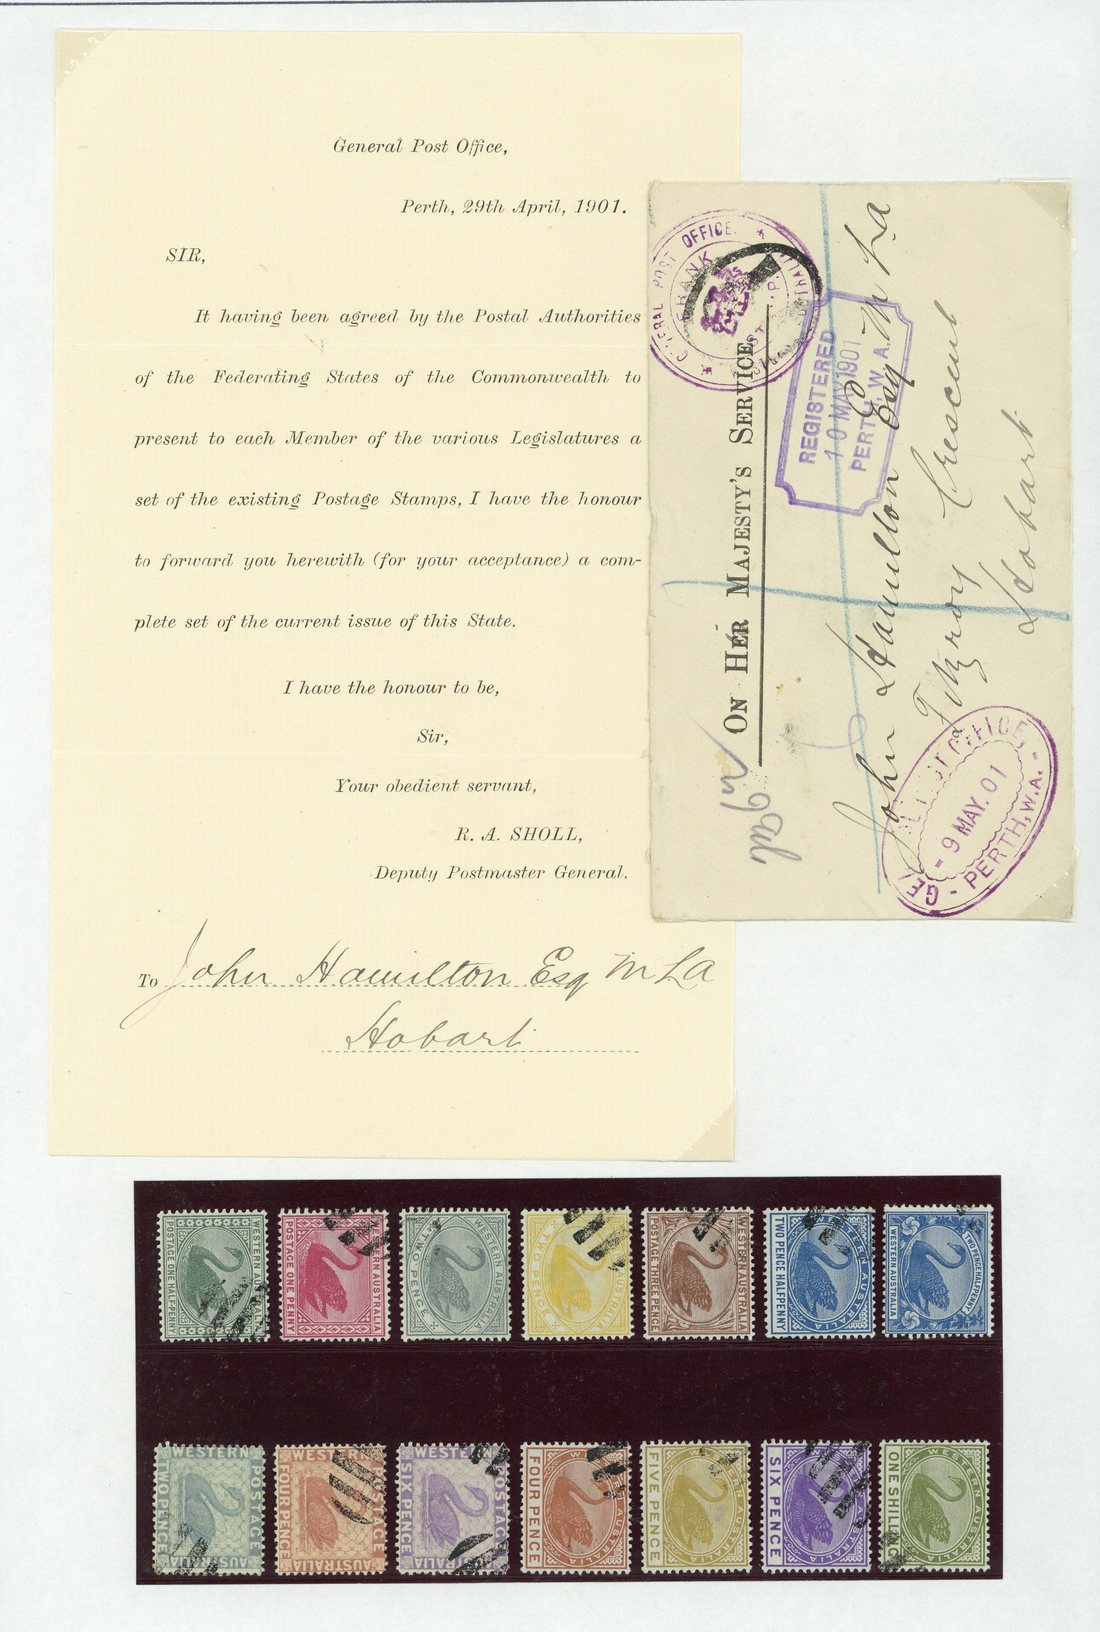 General Post Office,
Perth, 29th April, 1901.
SIR,
It having been agreed by the Postal Authorities
of the Federating States of the Commonwealth to
present to each Member of the various Legislatures a
set of the existing Postage Stamps, I have the honour
to forward you herewith (for your acceptance) a com-
plete set of the current issue of this State.
I have the honour to be,
Sir,
Your obedient servant,
R. A. SHOLL,
Deputy Postmaster General.
To John Hamilton Esq MLA
Hobart
ON HER MAJESTY'S SERVICE
GENERAL POST OFFICE
FRANK
REGISTERED
10 MAY 1901
PERTH, W.A.
John Hamilton Esq MLA
Fitzroy Crescent
Hobart
POST OFFICE
9 MAY. 01
PERTH, W.A.
WESTERN AUSTRALIA
POSTAGE ONE HALF-PENNY
WESTERN AUSTRALIA
POSTAGE ONE PENNY
WESTERN AUSTRALIA
TWO PENCE
AUSTRALIA
TWO PENCE
WESTERN AUSTRALIA
POSTAGE THREE PENCE
WESTERN AUSTRALIA
TWO PENCE HALFPENNY
TWO PENCE HALFPENNY
WESTERN AUSTRALIA
WESTERN
POSTAGE
AUSTRALIA
TWO PENCE
WESTERN
POSTAGE
AUSTRALIA
FOUR PENCE
WESTERN
POSTAGE
AUSTRALIA
SIX PENCE
WESTERN AUSTRALIA
FOUR PENCE
WESTERN AUSTRALIA
FIVE PENCE
WESTERN AUSTRALIA
SIX PENCE
WESTERN AUSTRALIA
ONE SHILLING